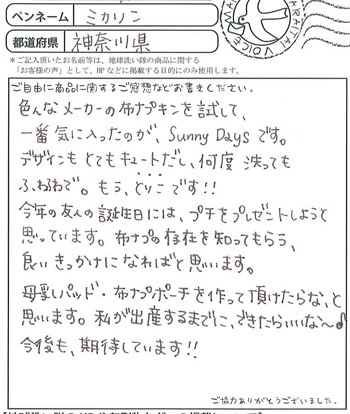 ペンネーム ミカリン
都道府県 神奈川県
＊ご記入頂いたお名前等は、地球洗い隊の商品に関する
「お客様の声」として、HPなどに掲載する目的にのみ使用します。
ご自由に商品に関するご感想などお書きください。
色んなメーカーの布ナプキンを試して、
一番気に入ったのが、Sunny Daysです。
デザインもとてもキュートだし、何度洗っても
ふわふわで。もう、とりこです!!
今年の友人の誕生日には、プチをプレゼントしようと
思っています。布ナプの存在を知ってもらう、
良いきっかけになればと思います。
母乳パッド・布ナプポーチを作って頂けたらな、と
思います。私が出産するまでに、できたらいいな〜♪
今後も、期待しています!!
ご協力ありがとうございました。